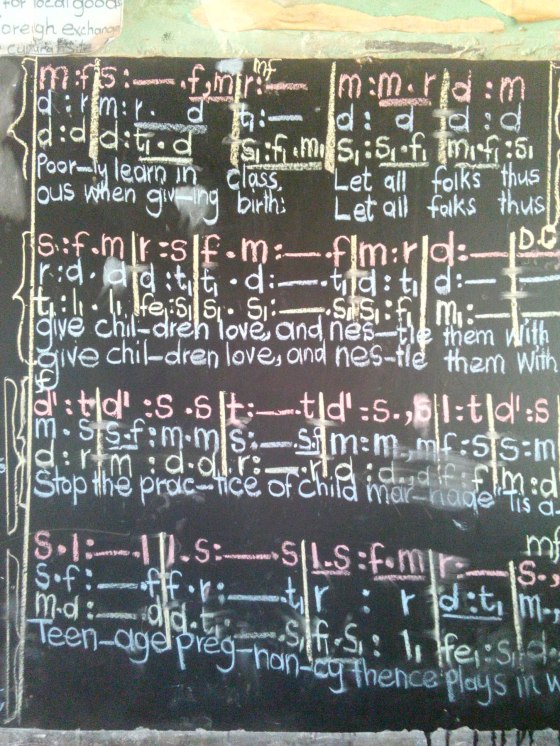 for local goods
oreign exchange
m : f | s : — . f, m | r : — mf | m : m . r | d : m
d : r | m : r . d | t₁ : — | d : d | d : d
d : d | d : t₁ . d | s₁ : f₁ . m₁ | s₁ : s₁ . f₁ | m₁ . f₁ : s₁
Poor-ly learn in class. Let all folks thus
ous when giv-ing birth; Let all folks thus
s : f . m | r : s | f . m : — . f | m : r | d : — | — D.C
r : d . d | d : t₁ | t₁ . d : — . t₁ | d : t₁ | d : — | —
t₁ : l₁ . l₁ | fe₁ : s₁ | s₁ . s₁ : — . s₁ | s₁ : f₁ | m₁ : — | —
give chil-dren love, and nes-tle them with
give chil-dren love, and nes-tle them with
f
d' : t | d' : s . s | t : — . t | d' : s . , s | l : t | d' : s
m . s | s . f : m . m | s : — . s f | m : m . , m | f : s | s : m
d : r | m : d . d | r : — . r | d : d . , d | f : f | m : d
Stop the prac-tice of child mar-riage 'tis a
s . l : — . l | l . s : — . s | l . s : f . m | r : — | s . mf
s . f : — . f | f . r : — . t₁ | r : r | d : t₁ | m . ,
m . d : — . d | d . t₁ : — . s₁ | f₁ . s₁ : l₁ | fe₁ : s₁ | d .
Teen-age preg-nan-cy thence plays in